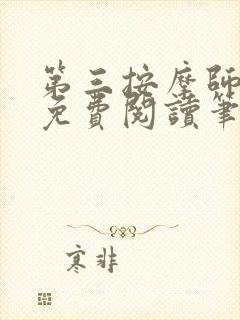 第三按摩師
免費閱讀筆
寒非